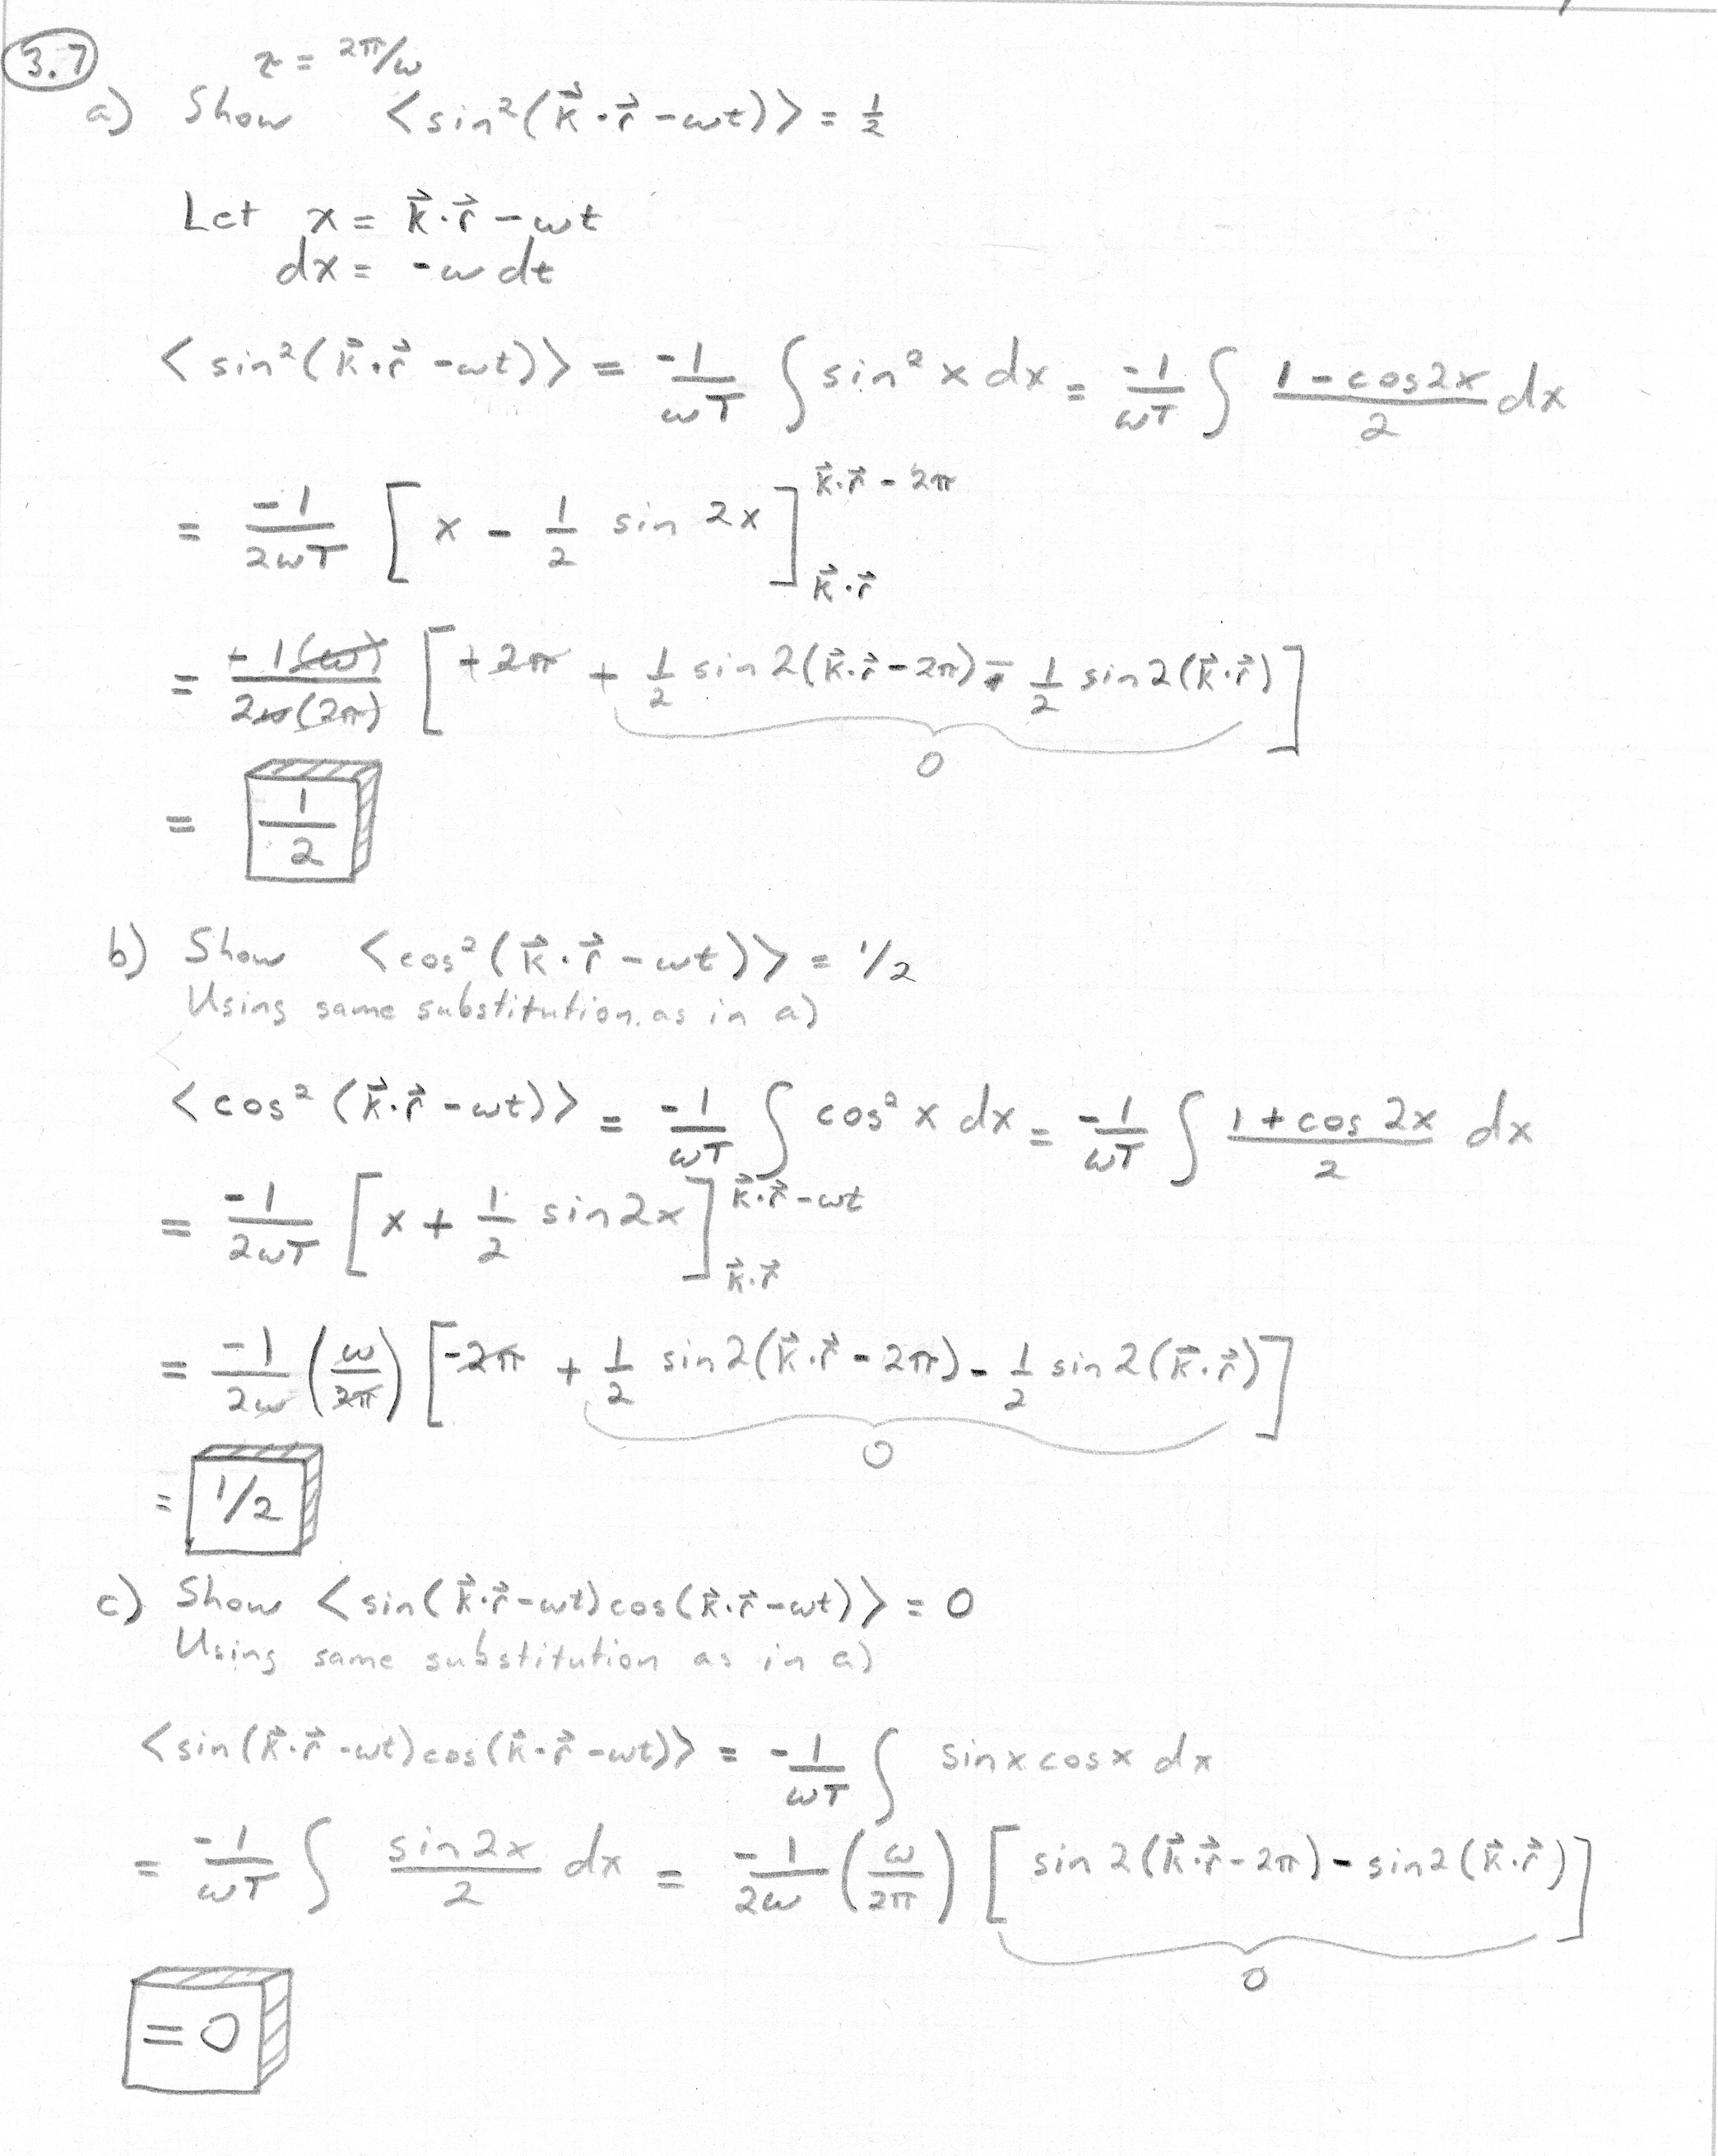 3.7
τ = 2π/ω
a) Show <sin²(k⃗·r⃗ - ωt)> = 1/2
Let x = k⃗·r⃗ - ωt
dx = -ω dt
<sin²(k⃗·r⃗ - ωt)> = -1/ωT ∫ sin² x dx = -1/ωT ∫ (1 - cos2x)/2 dx
= -1/2ωT [x - 1/2 sin 2x] k⃗·r⃗ - 2π k⃗·r⃗
= +1(ω)/2ω(2π) [+2π + 1/2 sin2(k⃗·r⃗ - 2π) - 1/2 sin2(k⃗·r⃗)]
0
= 1/2
b) Show <cos²(k⃗·r⃗ - ωt)> = 1/2
Using same substitution. as in a)
<cos²(k⃗·r⃗ - ωt)> = -1/ωT ∫ cos² x dx = -1/ωT ∫ (1 + cos 2x)/2 dx
= -1/2ωT [x + 1/2 sin2x] k⃗·r⃗ - ωt k⃗·r⃗
= -1/2ω (ω/2π) [-2π + 1/2 sin2(k⃗·r⃗ - 2π) - 1/2 sin2(k⃗·r⃗)]
0
= 1/2
c) Show <sin(k⃗·r⃗ - ωt)cos(k⃗·r⃗ - ωt)> = 0
Using same substitution as in a)
<sin(k⃗·r⃗ - ωt)cos(k⃗·r⃗ - ωt)> = -1/ωT ∫ sinx cosx dx
= -1/ωT ∫ sin2x/2 dx = -1/2ω (ω/2π) [sin2(k⃗·r⃗ - 2π) - sin2(k⃗·r⃗)]
0
= 0